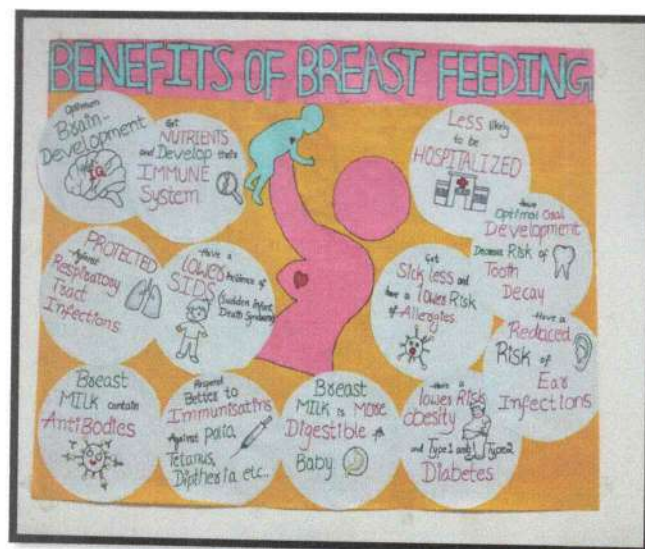 BENEFITS OF BREAST FEEDING
Optimum
Brain-
Development
IQ
Get
NUTRIENTS
and Develop their
IMMUNE
System
Less likely
to be
HOSPITALIZED
Have
Optimal Oral
Development
Decreases Risk of
Tooth
Decay
PROTECTED
Against
Respiratory
Tract
Infections
Have a
LOWER
Incidence of
SIDS
(Sudden Infant
Death Syndrome)
Get
Sick less and
have a lower Risk
of Allergies
Have a
Reduced
Risk of
Ear
Infections
Breast
MILK contain
AntiBodies
Respond
Better to
Immunisatins
Against Polio,
Tetanus,
Diptheria etc..
Breast
MILK is More
Digestible
Baby
Have a
lower Risk
obesity
and Type1 and Type2
Diabetes